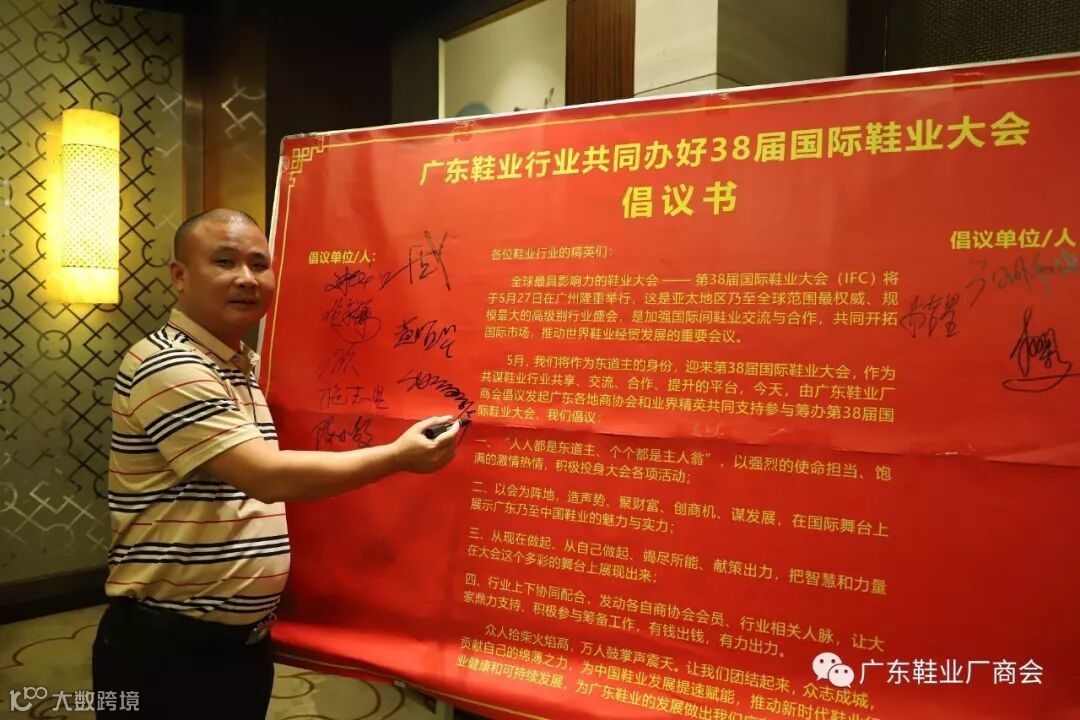 广东鞋业行业共同办好38届国际鞋业大会
倡议书
倡议单位/人：
各位鞋业行业的精英们：
全球最具影响力的鞋业大会 —— 第38届国际鞋业大会（IFC）将
于5月27日在广州隆重举行，这是亚太地区乃至全球范围最权威、规
模最大的高级别行业盛会，是加强国际间鞋业交流与合作，共同开拓
国际市场，推动世界鞋业经贸发展的重要会议。
5月，我们将作为东道主的身份，迎来第38届国际鞋业大会，作为
共谋鞋业行业共享、交流、合作、提升的平台，今天，由广东鞋业厂
商会倡议发起广东各地商协会和业界精英共同支持参与筹办第38届国
际鞋业大会，我们倡议：
一、“人人都是东道主、个个都是主人翁”，以强烈的使命担当、饱
满的激情热情，积极投身大会各项活动；
二、以会为阵地，造声势、聚财富、创商机、谋发展，在国际舞台上
展示广东乃至中国鞋业的魅力与实力；
三、从现在做起、从自己做起、竭尽所能、献策出力，把智慧和力量
在大会这个多彩的舞台上展现出来；
四、行业上下协同配合，发动各自商协会会员、行业相关人脉，让大
家鼎力支持、积极参与筹备工作，有钱出钱，有力出力。
众人拾柴火焰高，万人鼓掌声震天。让我们团结起来，众志成城，
贡献自己的绵薄之力，为中国鞋业发展提速赋能，推动新时代鞋业行
业健康和可持续发展，为广东鞋业的发展做出我们
倡议单位/人：
广东鞋业厂商会
大数跨境